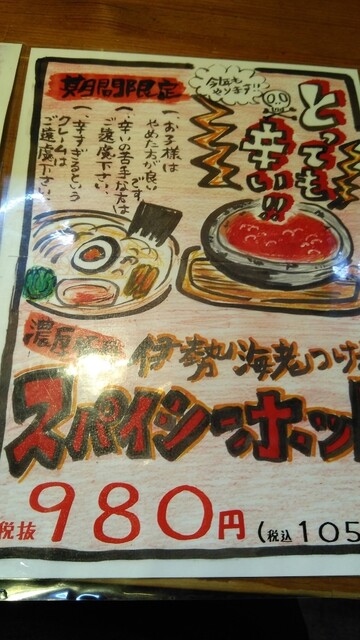 期間限定
今年も
やります!!
とっても
辛い!!
一、お子様は
やめた方が良い
です。
一、辛いの苦手な方は
ご遠慮下さい、
一、辛すぎるという
クレームは
ご遠慮下さい
濃厚
伊勢海老つけ
スパイシーホット
税抜 980円 (税込 105